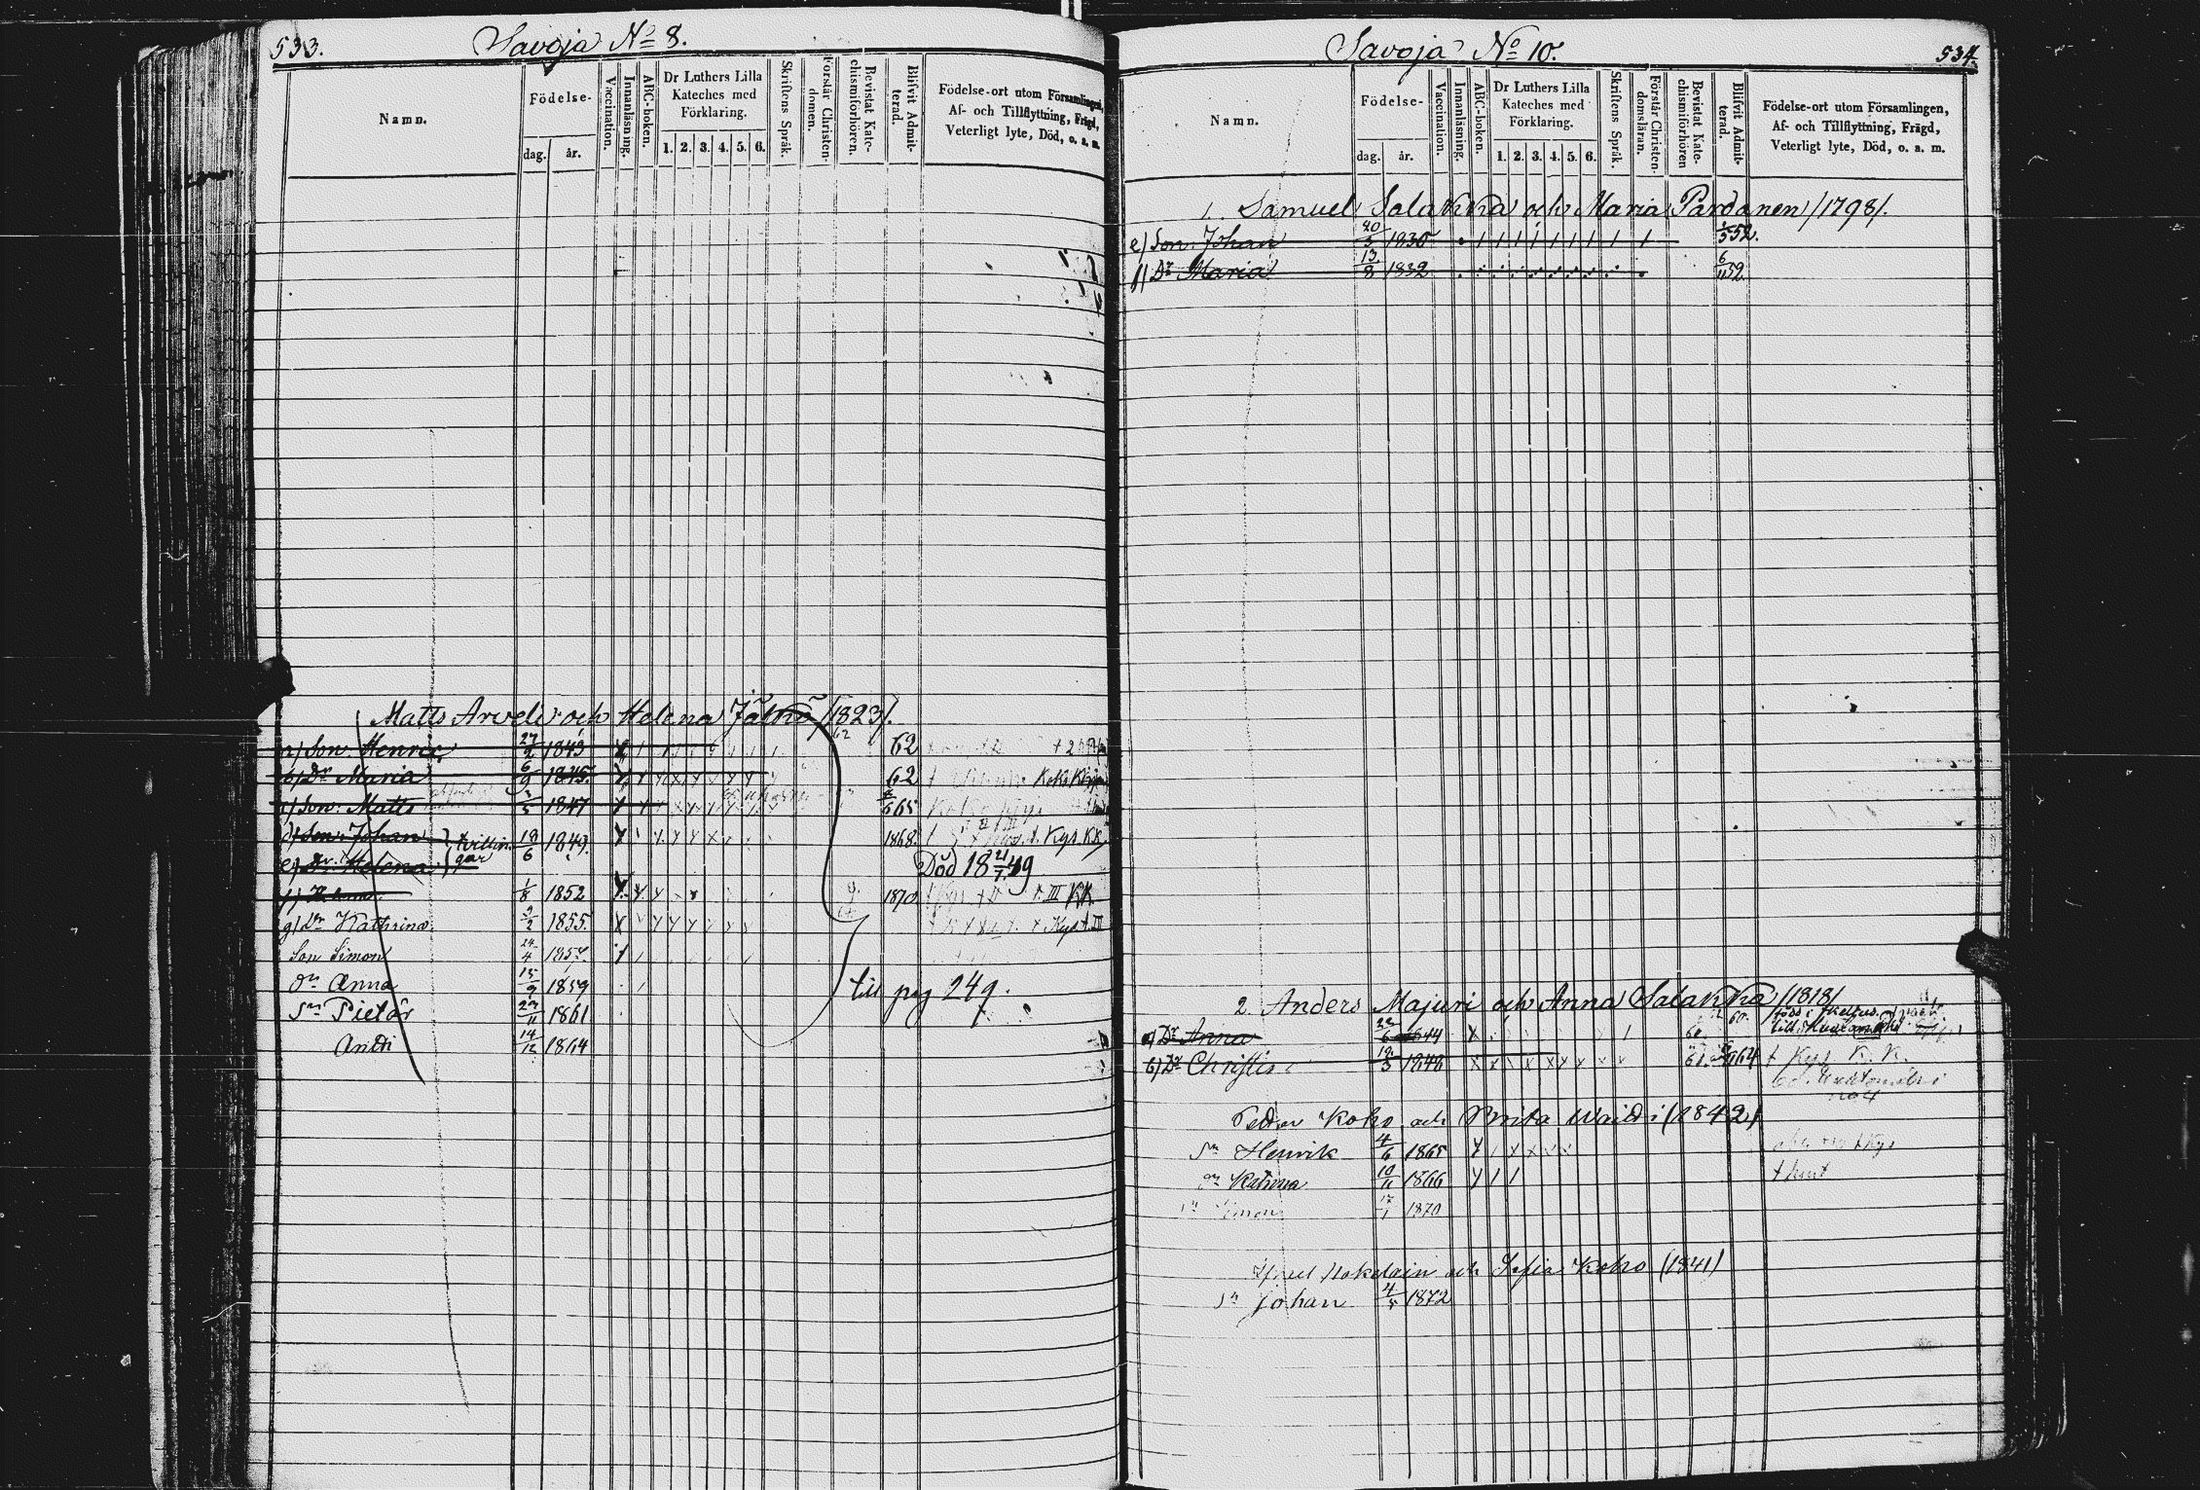 533.
Savoja No 8.
Namn.
Födelse-
dag. år.
Vaccination.
Innanläsning.
ABC-boken.
Dr Luthers Lilla
Kateches med
Förklaring.
1. 2. 3. 4. 5. 6.
Skriftens Språk.
Förstår Christen-
domen.
Bevistat Kate-
chismiförhören.
Blifvit Admit-
terad.
Födelse-ort utom Församlingen,
Af- och Tillflyttning, Frägd,
Veterligt lyte, Död, o. s. m.
Matts Arvela och Helena /1823/.
a) Son: Henric 27/2 1843 62
b) Dr Maria 6/9 1845. 62
c) Son: Matts 3/5 1847 65
d) Son: Johan tvillin- 18/6 1849. 1868. Kys. KK
e) Dr. Helena gar Död 18 21/7 49
f) 1/8 1852 1870 III KK
g) Dr Kathrina 9/2 1855.
Son Simon 24/4 1857.
Dr Anna 15/9 1859 till pag 249.
Sn Pietar 29/11 1861
Antti 14/12 1864
Savoja No 10.
534.
Namn.
Födelse-
dag. år.
Vaccination.
Innanläsning.
ABC-boken.
Dr Luthers Lilla
Kateches med
Förklaring.
1. 2. 3. 4. 5. 6.
Skriftens Språk.
Förstår Christen-
domsläran.
Bevistat Kate-
chismiförhören
Blifvit Admit-
terad.
Födelse-ort utom Församlingen,
Af- och Tillflyttning, Frägd,
Veterligt lyte, Död, o. s. m.
1. Samuel Salakka och Maria Pardanen /1798/.
e) Son: Johan 20/5 1830 52.
f) Dr Maria 13/8 1832 6/11 52.
2. Anders Majuri och Anna Salakka /1818/
a) Dr Anna 22/6 1844
b) Dr Christi 19/3 1846 Kys. K. K.
Petter Koho och Brita (1842)
Sn Henrik 4/6 1865
Dr Katrina 10/11 1866
Simon 17/1 1870
och Sofia Koho (1841)
Sn Johan 4/5 1872